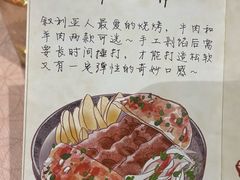 叙利亚人最爱的烧烤,牛肉和
羊肉两款可选~手工剁馅后需
要长时间捶打,才能打造松软
又有一定弹性的奇妙口感~